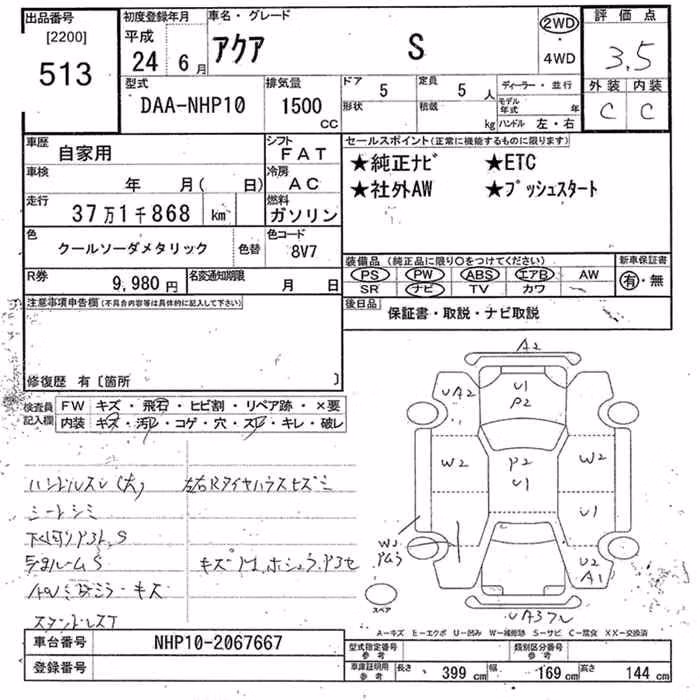 出品番号
[2200]
513
初度登録年月
平成
24 6月
車名・グレード
アクア S
2WD
4WD
評価点
3.5
外装 内装
C C
型式
DAA-NHP10
排気量
1500
CC
ドア 5
形状
定員 5 人
積載 kg
ディーラー・並行
モデル年式 年
ハンドル 左・右
車歴
自家用
シフト
FAT
車検
年 月( 日)
冷房
AC
走行
37万1千868 km
燃料
ガソリン
色
クールソーダメタリック
色替
色コード
8V7
R券
9,980円
名変通知期限
月 日
セールスポイント(正常に機能するものに限ります)
★純正ナビ ★ETC
★社外AW ★プッシュスタート
装備品(純正品に限り○をつけてください)
PS PW ABS エアB AW
SR ナビ TV カワ
新車保証書
有・無
後日品
保証書・取説・ナビ取説
注意事項申告欄(不具合内容等は具体的に記入して下さい)
修復歴 有〔箇所 〕
検査員記入欄
FW キズ・飛石・ヒビ割・リペア跡・×要
内装 キズ・汚レ・コゲ・穴・スレ・キレ・破レ
ハンドルスレ(大) 左右Rタイヤハウスヒズミ
シートシミ
ルームS
A2
UA2
U1
P2
W2
P2
U1
W2
U1
W2
U2
A1
スペア
A=キズ E=エクボ U=凹み W=補修跡 S=サビ C=腐食 XX=交換済
車台番号
NHP10-2067667
登録番号
型式指定番号
参考
類別区分番号
参考
車庫証明用
参考
長さ 399cm 幅 169cm 高さ 144cm